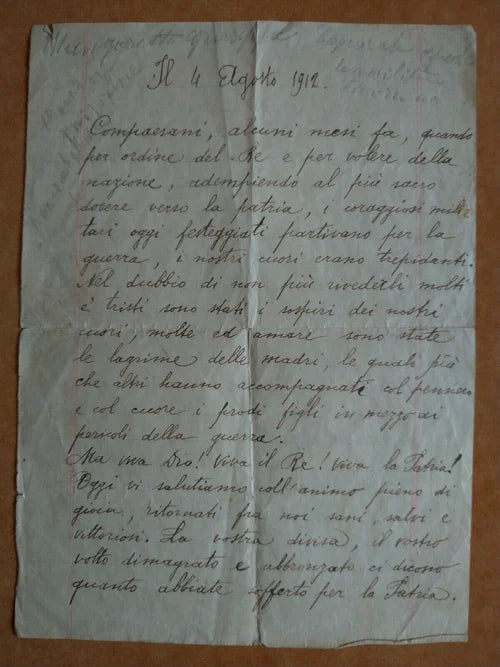 Il 4 Agosto 1912.
Compaesani, alcuni mesi fa, quando
per ordine del Re e per volere della
nazione, adempiendo al più sacro
dovere verso la patria, i coraggiosi mili-
tari oggi festeggiati partivano per la
guerra, i nostri cuori erano trepidanti.
Nel dubbio di non più rivederli molti
è tristi sono stati i sospiri dei nostri
cuori, molte ed amare sono state
le lagrime delle madri, le quali più
che altri hanno accompagnati col pensiero
e col cuore i prodi figli in mezzo ai
pericoli della guerra.
Ma viva Dio! Viva il Re! Viva la Patria!
Oggi vi salutiamo coll'animo pieno di
gioia, ritornati fra noi sani, salvi e
vittoriosi. La vostra divisa, il vostro
volto dimagrato e abbronzato ci dicono
quanto abbiate sofferto per la Patria.